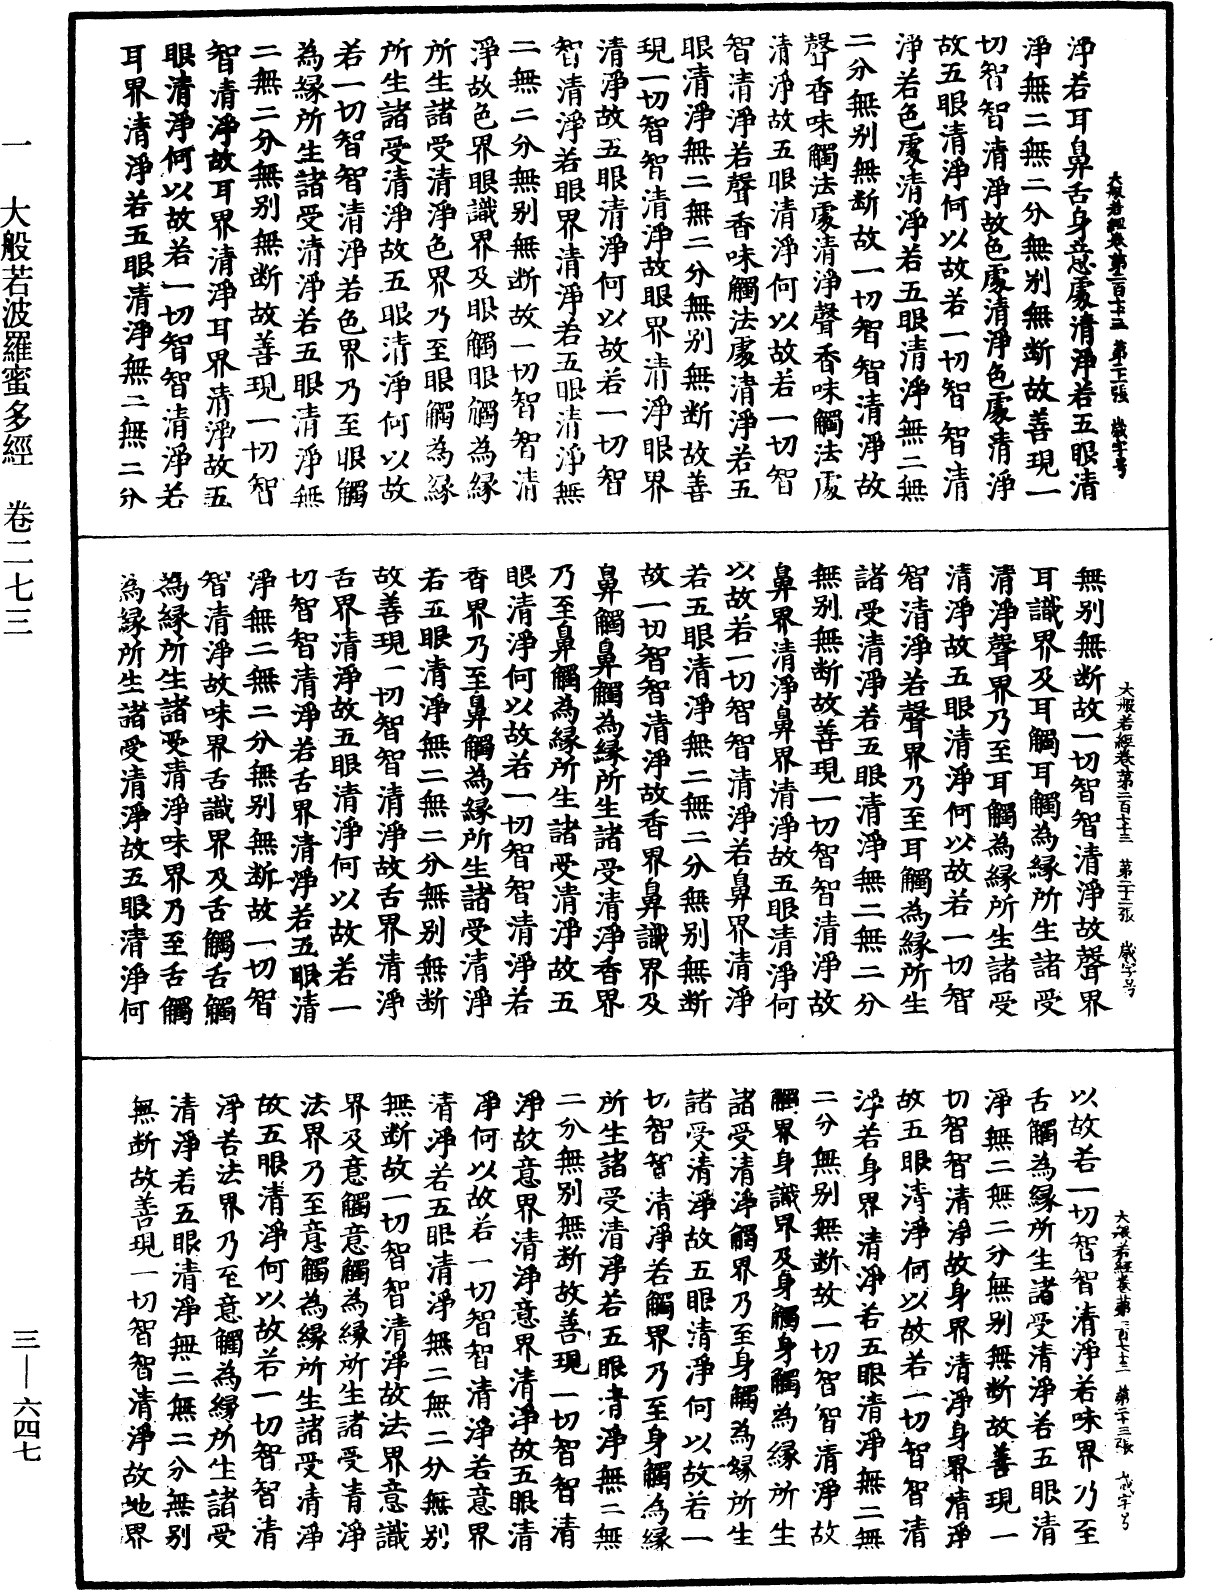 大般若經卷第二百七十三 第二十一張 歲字号
淨若耳鼻舌身意處清淨若五眼清
淨無二無二分無別無斷故善現一
切智智清淨故色處清淨色處清淨
故五眼清淨何以故若一切智智清
淨若色處清淨若五眼清淨無二無
二分無別無斷故一切智智清淨故
聲香味觸法處清淨聲香味觸法處
清淨故五眼清淨何以故若一切智
智清淨若聲香味觸法處清淨若五
眼清淨無二無二分無別無斷故善
現一切智智清淨故眼界清淨眼界
清淨故五眼清淨何以故若一切智
智清淨若眼界清淨若五眼清淨無
二無二分無別無斷故一切智智清
淨故色界眼識界及眼觸眼觸為緣
所生諸受清淨色界乃至眼觸為緣
所生諸受清淨故五眼清淨何以故
若一切智智清淨若色界乃至眼觸
為緣所生諸受清淨若五眼清淨無
二無二分無別無斷故善現一切智
智清淨故耳界清淨耳界清淨故五
眼清淨何以故若一切智智清淨若
耳界清淨若五眼清淨無二無二分
大般若經卷第二百七十三 第二十二張 歲字号
無別無斷故一切智智清淨故聲界
耳識界及耳觸耳觸為緣所生諸受
清淨聲界乃至耳觸為緣所生諸受
清淨故五眼清淨何以故若一切智
智清淨若聲界乃至耳觸為緣所生
諸受清淨若五眼清淨無二無二分
無別無斷故善現一切智智清淨故
鼻界清淨鼻界清淨故五眼清淨何
以故若一切智智清淨若鼻界清淨
若五眼清淨無二無二分無別無斷
故一切智智清淨故香界鼻識界及
鼻觸鼻觸為緣所生諸受清淨香界
乃至鼻觸為緣所生諸受清淨故五
眼清淨何以故若一切智智清淨若
香界乃至鼻觸為緣所生諸受清淨
若五眼清淨無二無二分無別無斷
故善現一切智智清淨故舌界清淨
舌界清淨故五眼清淨何以故若一
切智智清淨若舌界清淨若五眼清
淨無二無二分無別無斷故一切智
智清淨故味界舌識界及舌觸舌觸
為緣所生諸受清淨味界乃至舌觸
為緣所生諸受清淨故五眼清淨何
大般若經卷第二百七十三 第二十三張 歲字号
以故若一切智智清淨若味界乃至
舌觸為緣所生諸受清淨若五眼清
淨無二無二分無別無斷故善現一
切智智清淨故身界清淨身界清淨
故五眼清淨何以故若一切智智清
淨若身界清淨若五眼清淨無二無
二分無別無斷故一切智智清淨故
觸界身識界及身觸身觸為緣所生
諸受清淨觸界乃至身觸為緣所生
諸受清淨故五眼清淨何以故若一
切智智清淨若觸界乃至身觸為緣
所生諸受清淨若五眼清淨無二無
二分無別無斷故善現一切智智清
淨故意界清淨意界清淨故五眼清
淨何以故若一切智智清淨若意界
清淨若五眼清淨無二無二分無別
無斷故一切智智清淨故法界意識
界及意觸意觸為緣所生諸受清淨
法界乃至意觸為緣所生諸受清淨
故五眼清淨何以故若一切智智清
淨若法界乃至意觸為緣所生諸受
清淨若五眼清淨無二無二分無別
無斷故善現一切智智清淨故地界
一 大般若波羅蜜多經 卷二七三
三—六四七